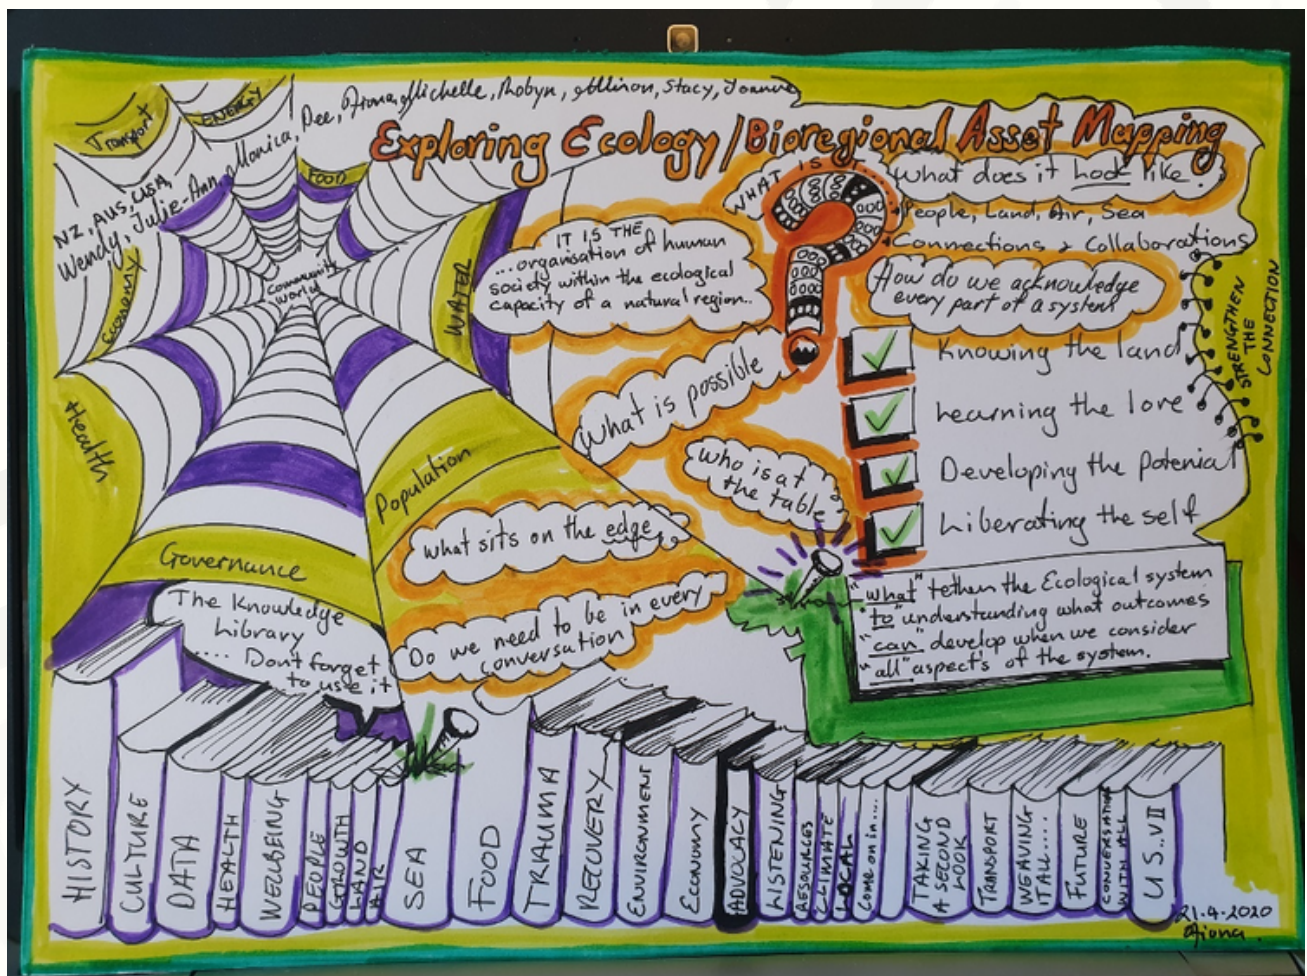 Transport
ENERGY
NZ, AUS, USA,
Wendy, Julie-Ann, Monica, Dee, Fiona, Michelle, Robyn, Allison, Stacy, Joanne
Exploring Ecology/Bioregional Asset Mapping
FOOD
WATER
Economy
Community
World
Health
Population
Governance
WHAT IS IT....
IT IS THE
...organisation of human
society within the ecological
capacity of a natural region..
What does it look like.
People, Land, Air, Sea
Connections & Collaborations
How do we acknowledge
every part of a system
STRENGTHEN
THE
CONNECTION
What is possible
Knowing the land
Learning the lore
Developing the potenial
Liberating the self
who is at
the table
what sits on the edge
Do we need to be in every
conversation
"what" tethers the Ecological system
"to" understanding what outcomes
"can" develop when we consider
"all" aspects of the system.
The Knowledge
Library
.... Don't forget
to use it
HISTORY
CULTURE
DATA
HEALTH
WELBEING
PEOPLE
GROWTH
LAND
AIR
SEA
FOOD
TRAUMA
RECOVERY
ENVIRONMENT
ECONOMY
ADVOCACY
LISTENING
RESOURCES
CLIMATE
LOCAL
Come on in...
TAKING
A SECOND
LOOK
TRANSPORT
WEAVING
IT ALL....
FUTURE
CONVERSATION
WITH ALL
U S..VII
21.4.2020
Fiona.